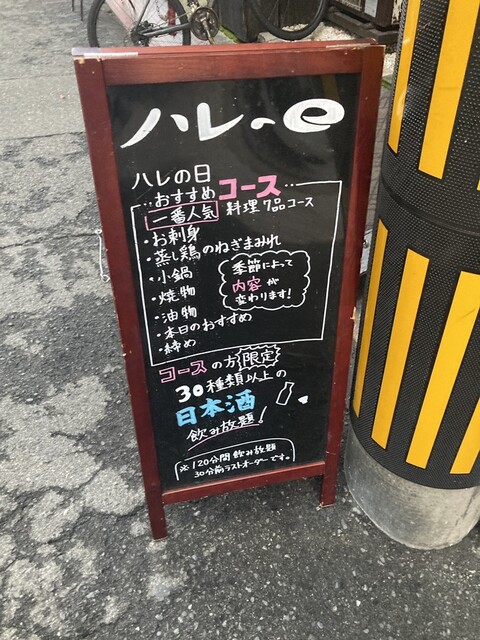 ハレのe
ハレの日
…おすすめコース…
一番人気 料理7品コース
・お刺身
・蒸し鶏のねぎまみれ
・小鍋
・焼物
・油物
・本日のおすすめ
・締め
季節によって
内容が
変わります!
コースの方限定
30種類以上の
日本酒
飲み放題!
※120分間飲み放題
30分前ラストオーダーです。